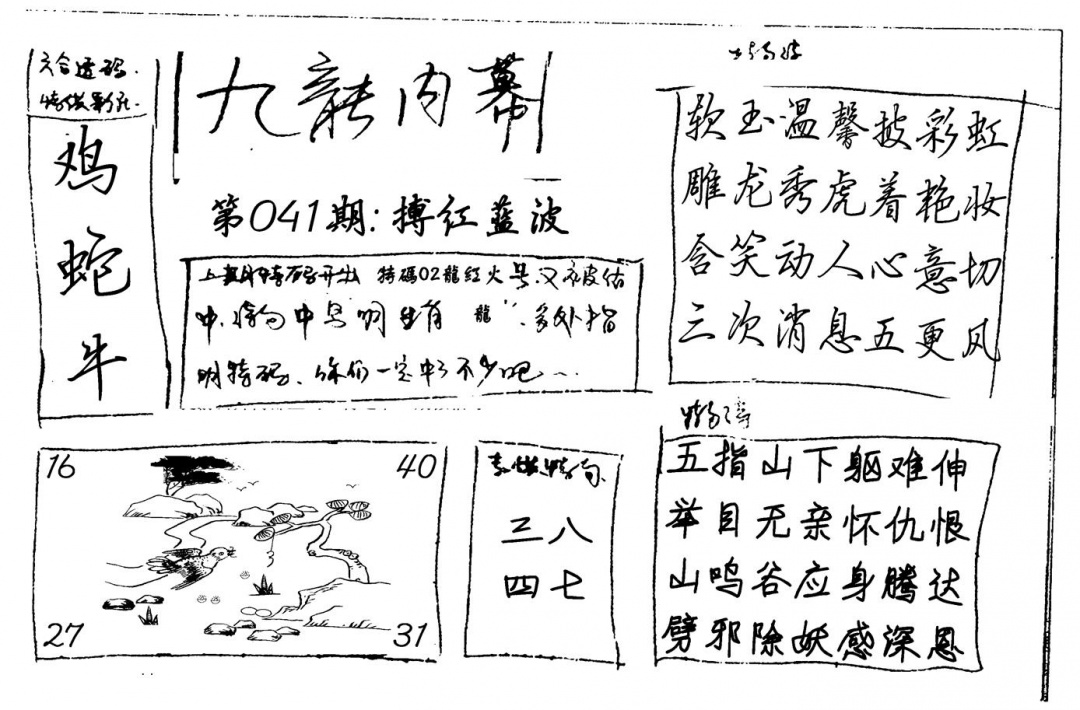 六合透码
鸡
蛇
牛
九龍内幕
第041期:搏红蓝波
上期特码开出 特碼02龍红火号又被估
中,中号明生肖龍",多处指
明特码,你们一定中了不少吧…
软玉温馨披彩虹
雕龙秀虎着艳妆
含笑动人心意切
三次消息五更风
16
40
27
31
三八
四七
五指山下躯难伸
举目无亲怀仇恨
山鸣谷应身腾达
劈邪除妖感深恩